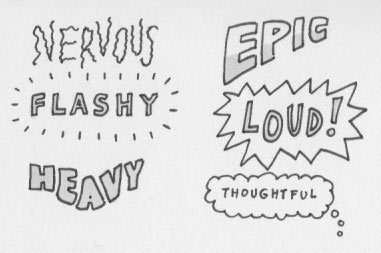 NERVOUS
FLASHY
HEAVY
EPIC
LOUD!
THOUGHTFUL